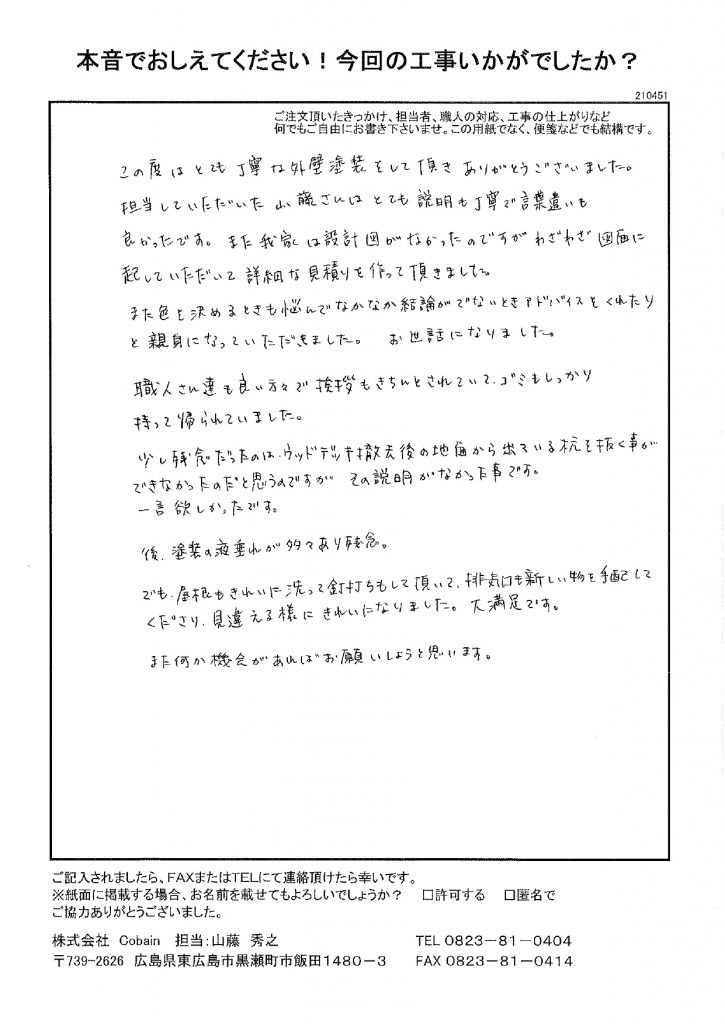 本音でおしえてください！今回の工事いかがでしたか？
210451
ご注文頂いたきっかけ、担当者、職人の対応、工事の仕上がりなど
何でもご自由にお書き下さいませ。この用紙でなく、便箋などでも結構です。
この度はとても丁寧な外壁塗装をして頂きありがとうございました。
担当していただいた山藤さんはとても説明も丁寧で言葉遣いも
良かったです。また我家は設計図がなかったのですがわざわざ図面に
起していただいて詳細な見積りを作って頂きました。
また色を決めるときも悩んでなかなか結論がでないときアドバイスをくれたり
と親身になっていただきました。 お世話になりました。
職人さん達も良い方々で挨拶もきちんとされていて、ゴミもしっかり
持って帰られていました。
少し残念だったのは、ウッドデッキ撤去後の地面から出ている杭を抜く事が
できなかったのだと思うのですが その説明がなかった事です。
一言欲しかったです。
後、塗装の液垂れが多々あり残念。
でも、屋根もきれいに洗って釘打ちもして頂いて、排気口も新しい物を手配して
くださり、見違える様にきれいになりました。大満足です。
また何か機会があればお願いしようと思います。
ご記入されましたら、FAXまたはTELにて連絡頂けたら幸いです。
※紙面に掲載する場合、お名前を載せてもよろしいでしょうか？ □許可する □匿名で
ご協力ありがとうございました。
株式会社 Cobain 担当：山藤 秀之 TEL 0823－81－0404
〒739-2626 広島県東広島市黒瀬町市飯田1480－3 FAX 0823－81－0414